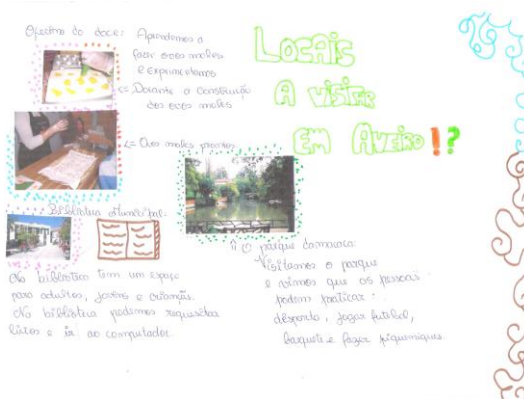 LOCAIS
A VISITAR
EM AVEIRO!?
Oficina do doce: Aprendemos a
fazer ovos moles
e experimentamos
<= Durante a construção
dos ovos moles
<= Ovos moles prontos.
Biblioteca Municipal:
Na biblioteca tem um espaço
para adultos, jovens e crianças.
Na biblioteca podemos requisitar
livros e ir ao computador.
⇑ O parque da macaca:
Visitamos o parque
e vimos que as pessoas
podem praticar:
desporto, jogar futebol,
basquete e fazer piqueniques.